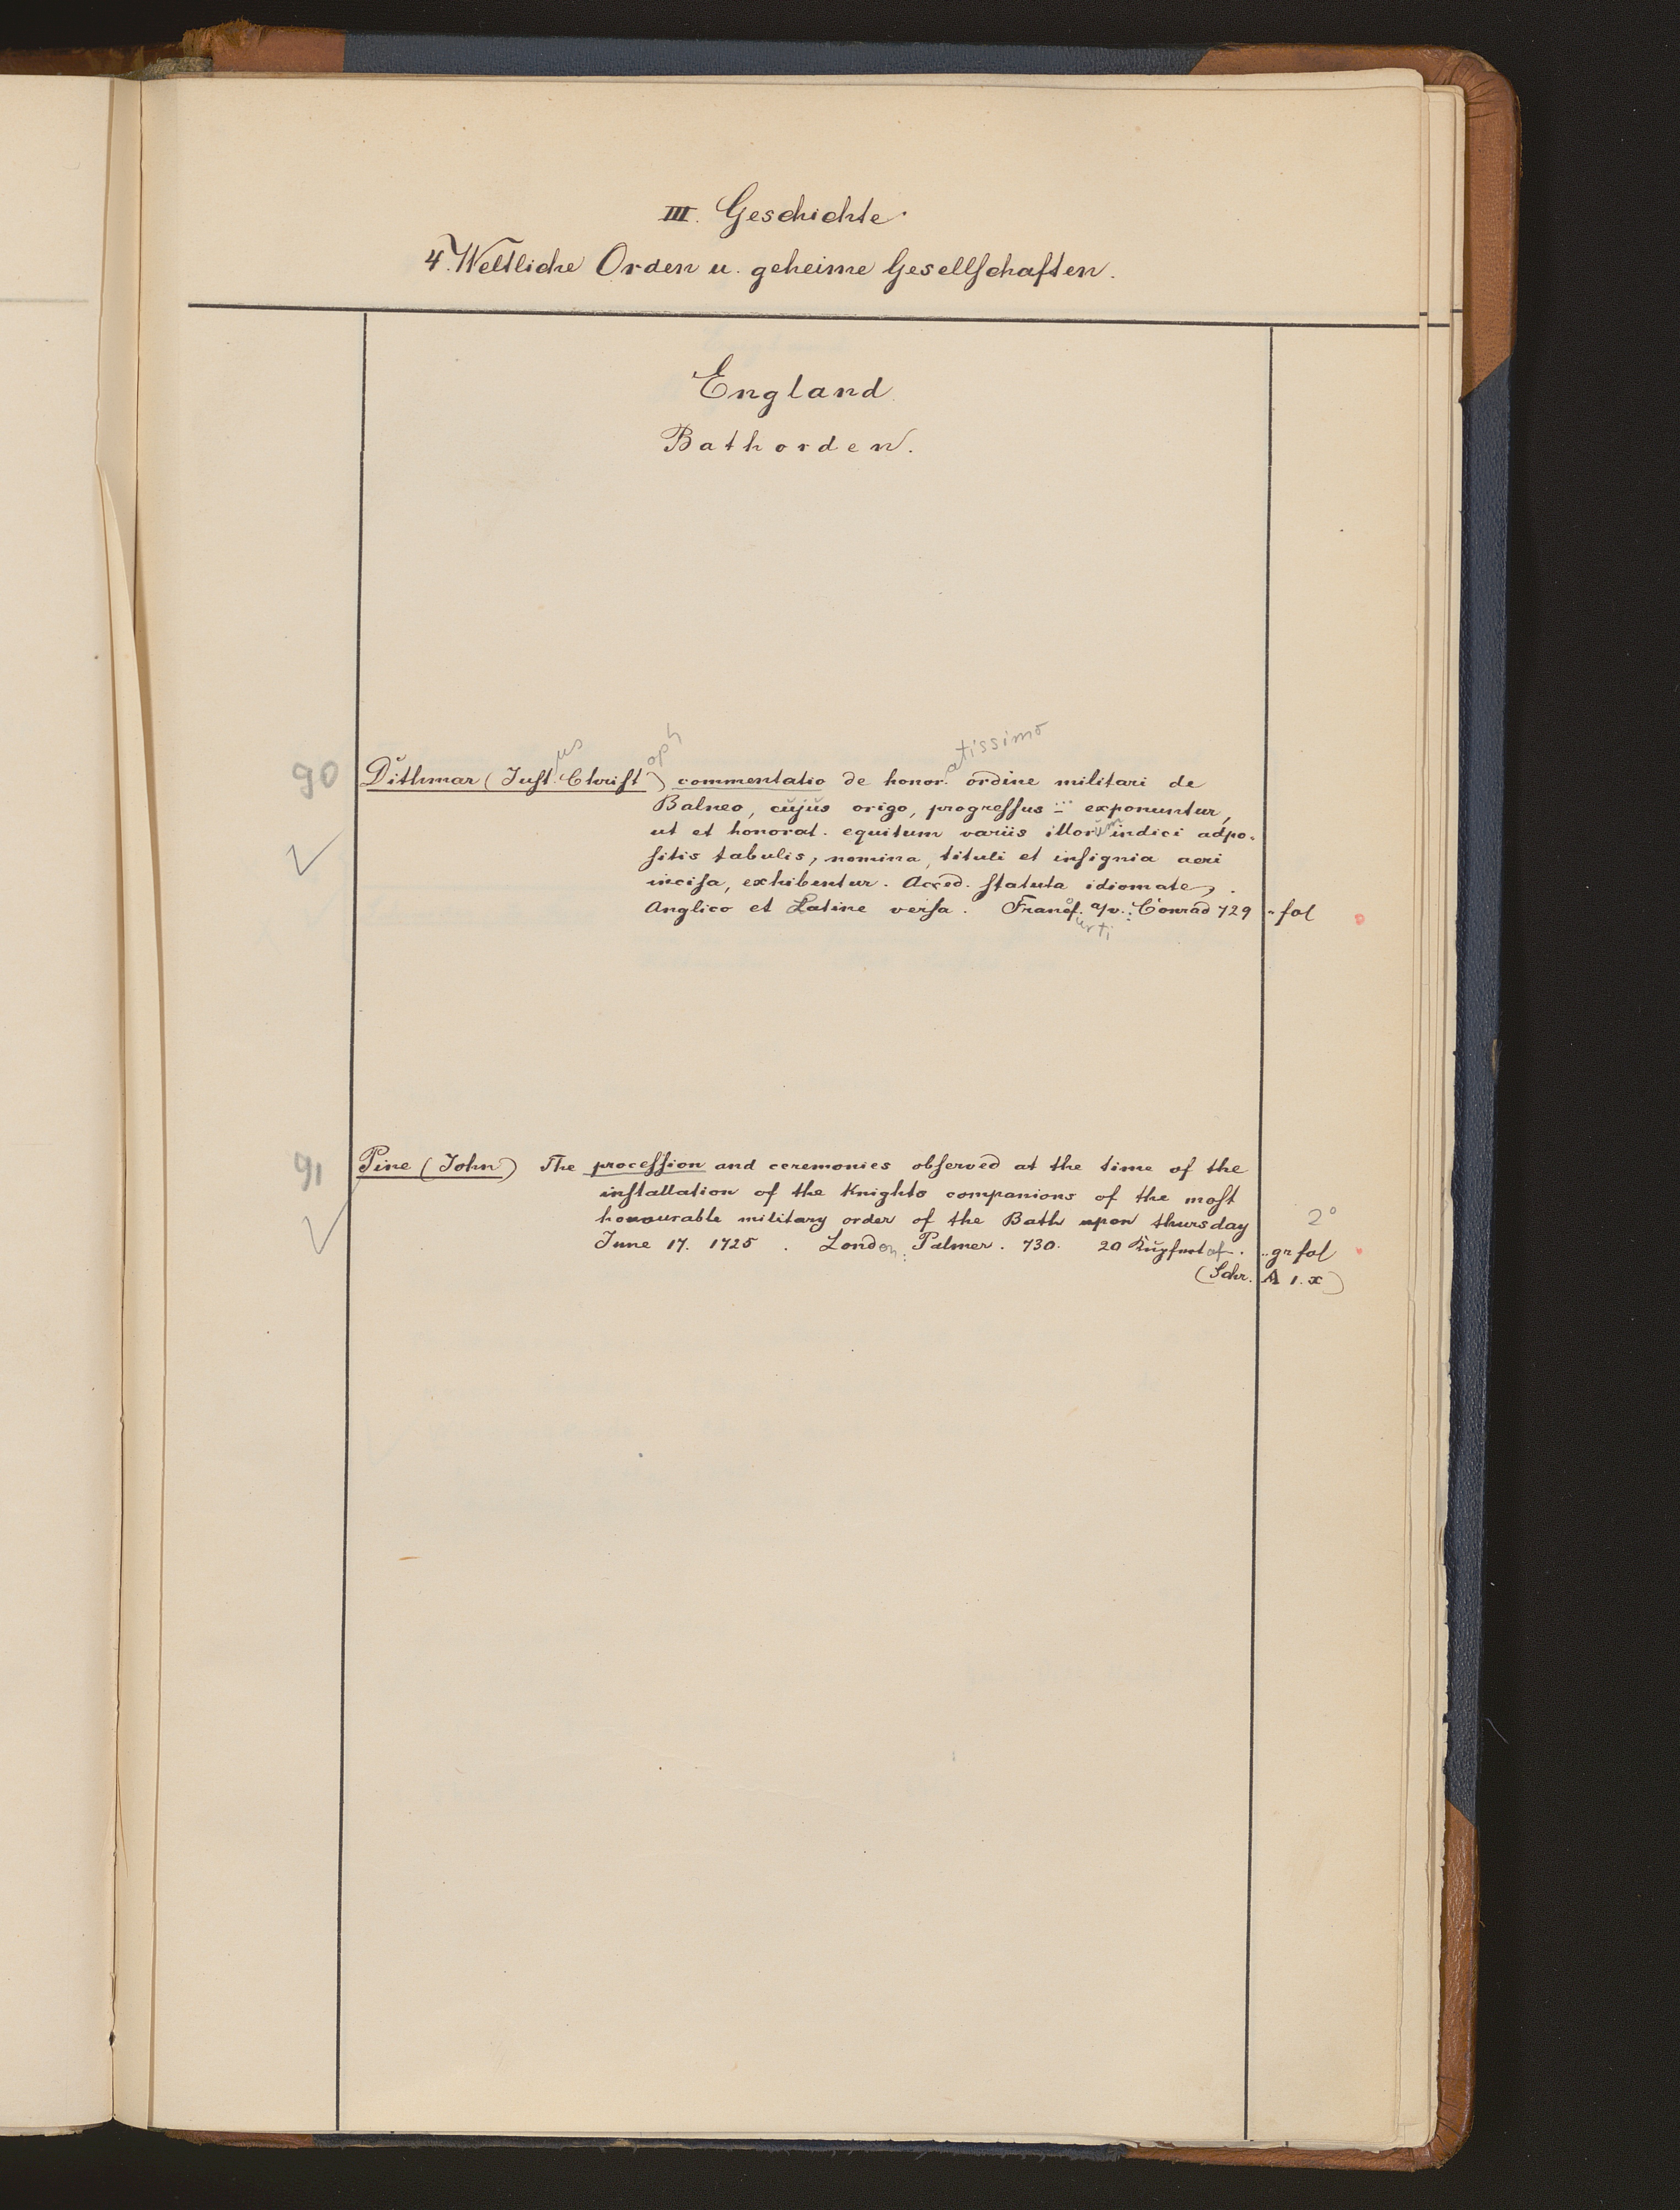 III. Geschichte.
4. Weltliche Orden u. geheime Gesellſchaften.
England
Bathorden.
us oph atissimo
90 Dithmar (Juſt. Chriſt.) commentatio de honor. ordine militari de
Balneo, cujus origo, progreſſus ... exponuntur,
ut et honorat. equitum variis illorum indici adpo-
ſitis tabulis, nomina, tituli et inſignia aeri
inciſa, exhibentur. Acced. ſtatuta idiomate,
Anglico et Latine verſa. Francof. a/v.: Conrad 729 fol
urti
91 Pine (John) The proceſſion and ceremonies obſerved at the time of the
inſtallation of the Knights companions of the moſt
honourable military order of the Bath upon thursday 2°
June 17. 1725. London: Palmer. 730. 20 Kupfertaf. gr fol
(Schr. A 1. x)